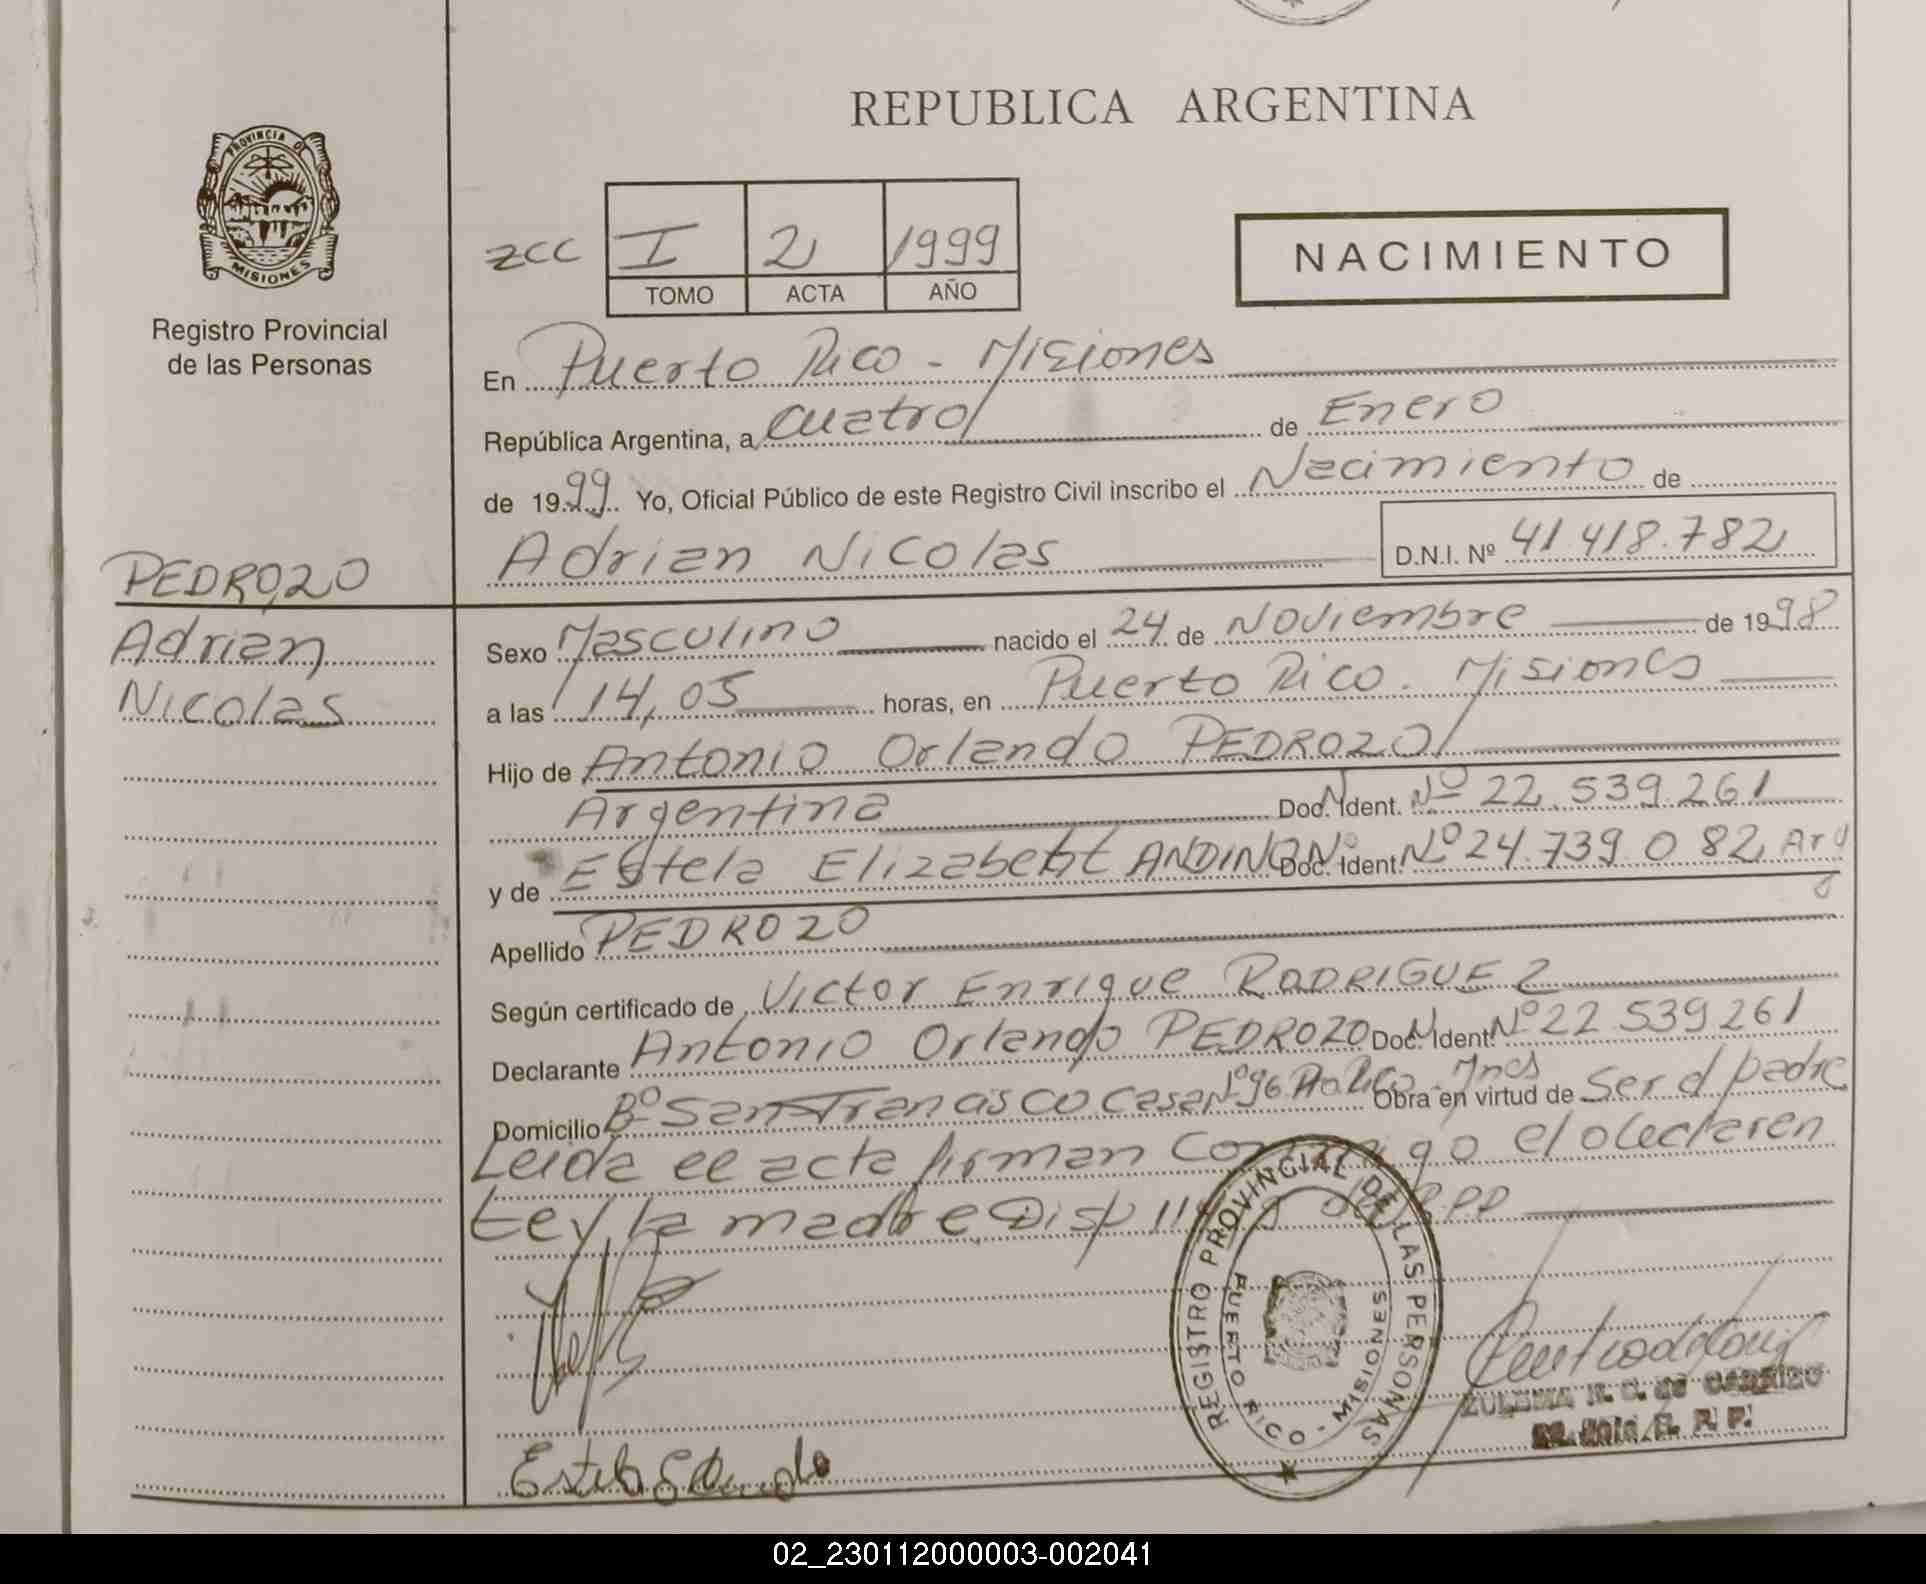 REPUBLICA ARGENTINA
PROVINCIA DE
MISIONES
Registro Provincial
de las Personas
zcc I 2 1999
TOMO ACTA AÑO
NACIMIENTO
En Puerto Rico - Misiones
República Argentina, a Cuatro de Enero
de 1999 Yo, Oficial Público de este Registro Civil inscribo el Nacimiento de
Adrian Nicolas D.N.I. Nº 41 418.782
PEDROZO
Adrian
Nicolas
Sexo Masculino nacido el 24 de Noviembre de 1998
a las 14,05 horas, en Puerto Rico. Misiones
Hijo de Antonio Orlando PEDROZO
Argentina Doc. Ident. Nº 22.539.261
y de Estela Elizabeht ANDINO Doc. Ident. Nº 24.739.082 Arg
Apellido PEDROZO
Según certificado de Victor Enrique RODRIGUEZ
Declarante Antonio Orlando PEDROZO Doc. Ident. Nº 22 539 261
Domicilio Bº San Francisco Casa Nº 96 Pto Rico - Mnes Obra en virtud de Ser el padre
Leida el acta firman Conmigo el declaren
te y la madre Disp
REGISTRO PROVINCIAL DE LAS PERSONAS
PUERTO RICO - MISIONES
ZULEMA
02_230112000003-002041